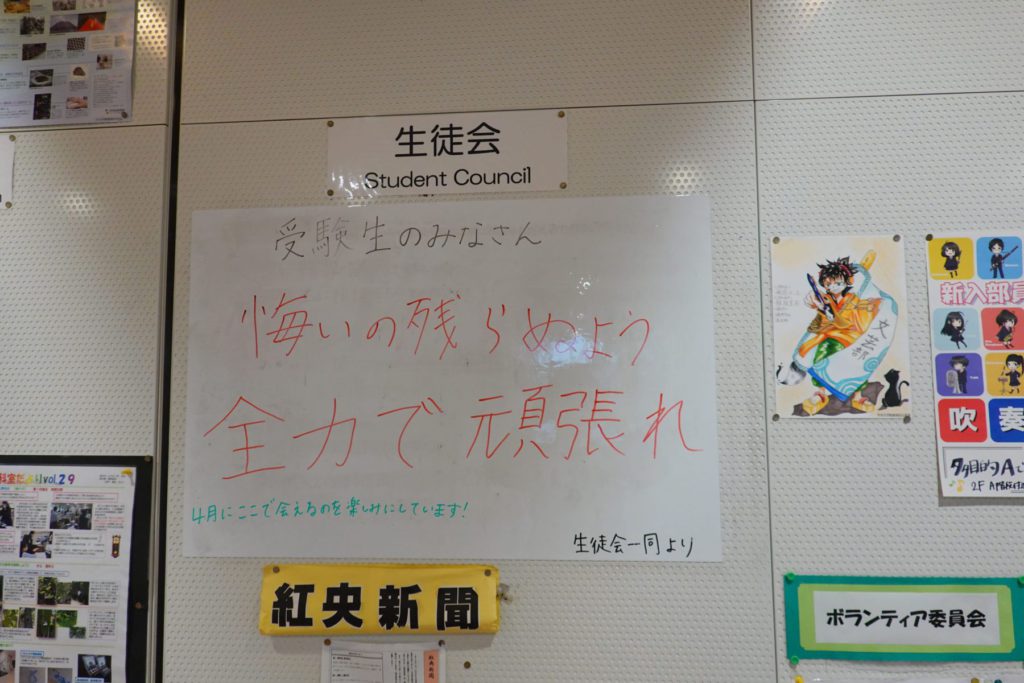 生徒会
Student Council
受験生のみなさん
悔いの残らぬよう
全力で頑張れ
4月にここで会えるのを楽しみにしています!
生徒会一同より
紅央新聞
文芸部
新入部員
吹奏
ボランティア委員会
科室だよりvol.29